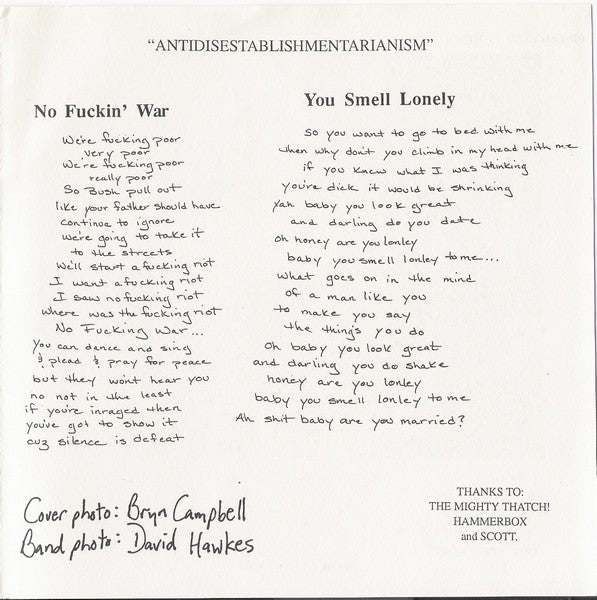 "ANTIDISESTABLISHMENTARIANISM"
No Fuckin' War
We're fucking poor
very poor
We're fucking poor
really poor
So Bush pull out
like your father should have
continue to ignore
we're going to take it
to the streets
We'll start a fucking riot
I want a fucking riot
I saw no fucking riot
where was the fucking riot
No Fucking War...
You can dance and sing
& plead & pray for peace
but they wont hear you
no not in the least
if you're inraged then
you've got to show it
cuz silence is defeat
You Smell Lonely
So you want to go to bed with me
then why don't you climb in my head with me
if you knew what I was thinking
you're dick it would be shrinking
yah baby you look great
and darling do you date
Oh honey are you lonley
baby you smell lonley to me...
What goes on in the mind
of a man like you
to make you say
the thing's you do
Oh baby you look great
and darling you do shake
honey are you lonley
baby you smell lonley to me
Ah shit baby are you married?
Cover photo: Bryn Campbell
Band photo: David Hawkes
THANKS TO:
THE MIGHTY THATCH!
HAMMERBOX
and SCOTT.